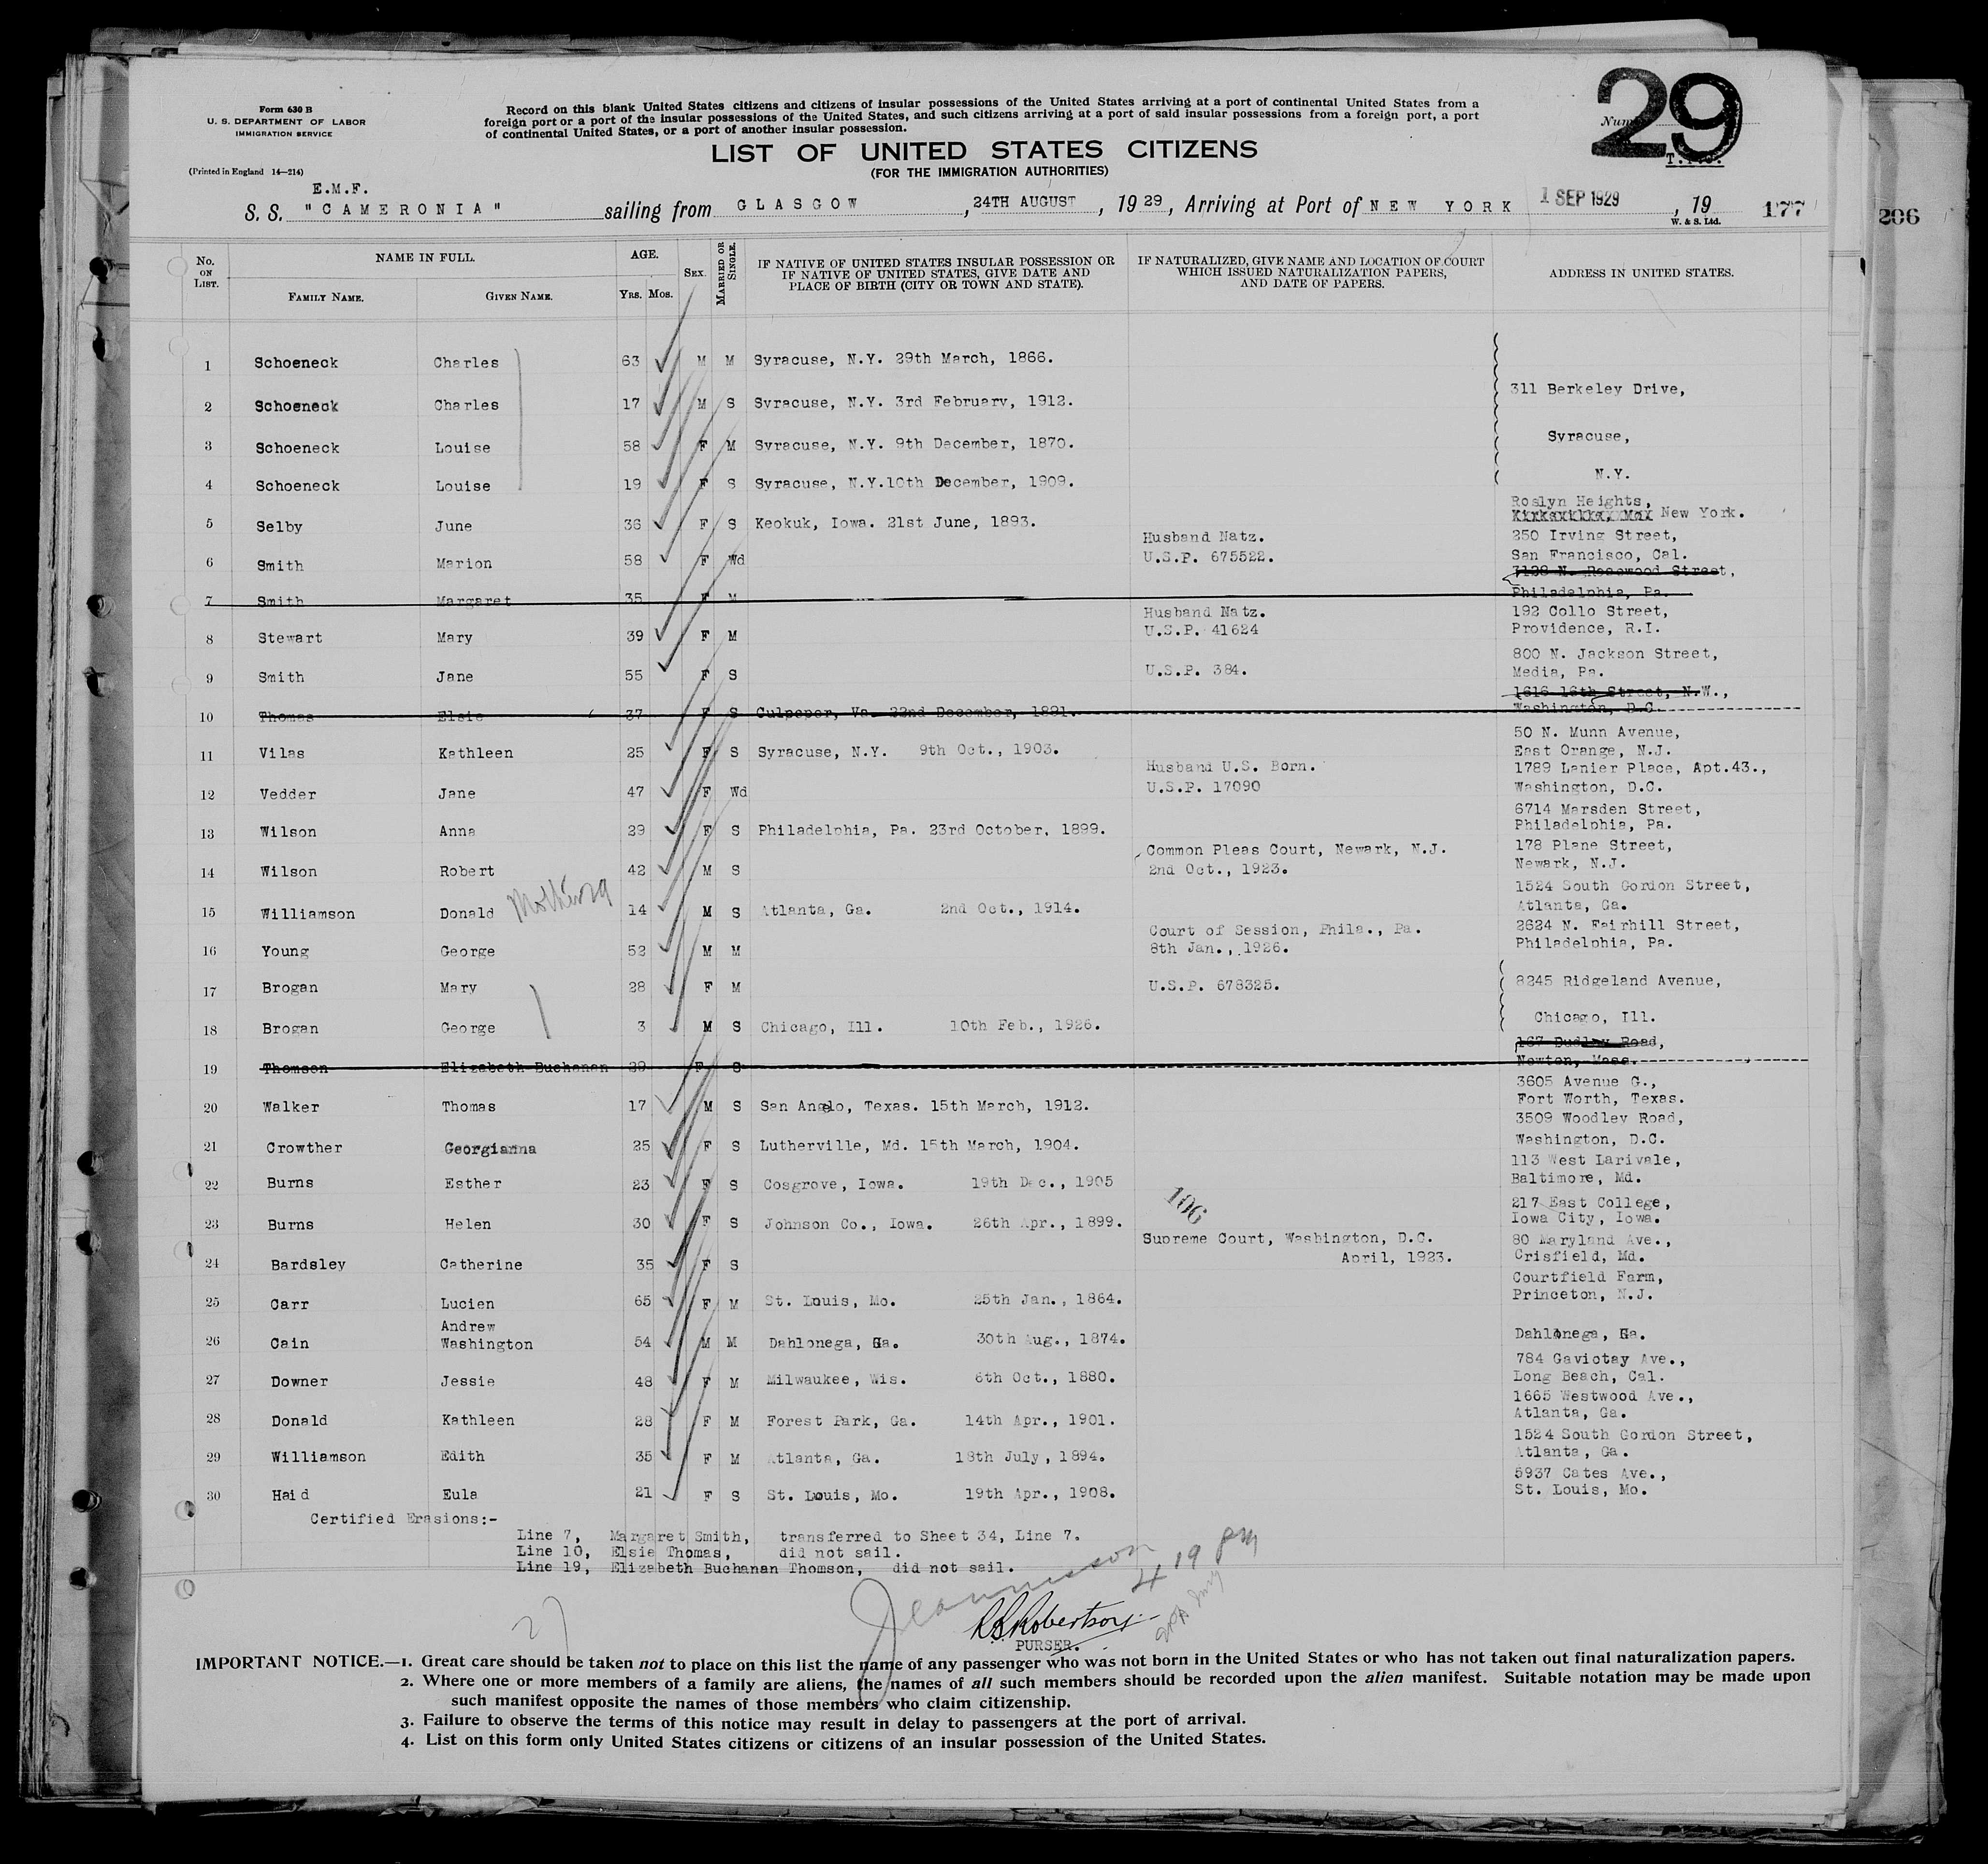 Form 630 B
U. S. DEPARTMENT OF LABOR
IMMIGRATION SERVICE
(Printed in England 14—214)
Record on this blank United States citizens and citizens of insular possessions of the United States arriving at a port of continental United States from a
foreign port or a port of the insular possessions of the United States, and such citizens arriving at a port of said insular possessions from a foreign port, a port
of continental United States, or a port of another insular possession.
29
LIST OF UNITED STATES CITIZENS
(FOR THE IMMIGRATION AUTHORITIES)
E.M.F.
S. S. "CAMERONIA" sailing from GLASGOW, 24TH AUGUST, 1929, Arriving at Port of NEW YORK 1 SEP 1929, 19 177
W. & S. Ltd.
206
No. ON LIST. NAME IN FULL. FAMILY NAME. GIVEN NAME. AGE. YRS. MOS. SEX. MARRIED OR SINGLE. IF NATIVE OF UNITED STATES INSULAR POSSESSION OR IF NATIVE OF UNITED STATES, GIVE DATE AND PLACE OF BIRTH (CITY OR TOWN AND STATE). IF NATURALIZED, GIVE NAME AND LOCATION OF COURT WHICH ISSUED NATURALIZATION PAPERS, AND DATE OF PAPERS. ADDRESS IN UNITED STATES.
1 Schoeneck Charles 63 M M Syracuse, N.Y. 29th March, 1866.
311 Berkeley Drive,
2 Schoeneck Charles 17 M S Syracuse, N.Y. 3rd February, 1912.
Syracuse,
3 Schoeneck Louise 58 F M Syracuse, N.Y. 9th December, 1870.
N.Y.
4 Schoeneck Louise 19 F S Syracuse, N.Y. 10th December, 1909.
Roslyn Heights,
5 Selby June 36 F S Keokuk, Iowa. 21st June, 1893. New York.
6 Smith Marion 58 F Wd Husband Natz. U.S.P. 675522. 250 Irving Street, San Francisco, Cal.
7 Smith Margaret 35 F M 7128 N. Rosewood Street, Philadelphia, Pa.
8 Stewart Mary 39 F M Husband Natz. U.S.P. 41624 192 Collo Street, Providence, R.I.
9 Smith Jane 55 F S U.S.P. 384. 800 N. Jackson Street, Media, Pa.
10 Thomas Elsie 37 F S Culpeper, Va. 22nd December, 1891. 1616 16th Street, N.W., Washington, D.C.
11 Vilas Kathleen 25 F S Syracuse, N.Y. 9th Oct., 1903. 50 N. Munn Avenue, East Orange, N.J.
12 Vedder Jane 47 F Wd Husband U.S. Born. U.S.P. 17090 1789 Lanier Place, Apt.43., Washington, D.C.
13 Wilson Anna 29 F S Philadelphia, Pa. 23rd October, 1899. 6714 Marsden Street, Philadelphia, Pa.
14 Wilson Robert 42 M S Common Pleas Court, Newark, N.J. 2nd Oct., 1923. 178 Plane Street, Newark, N.J.
15 Williamson Donald 14 M S Atlanta, Ga. 2nd Oct., 1914. 1524 South Gordon Street, Atlanta, Ga.
16 Young George 52 M M Court of Session, Phila., Pa. 8th Jan., 1926. 2624 N. Fairhill Street, Philadelphia, Pa.
17 Brogan Mary 28 F M U.S.P. 678325. 8245 Ridgeland Avenue,
18 Brogan George 3 M S Chicago, Ill. 10th Feb., 1926. Chicago, Ill.
19 Thomson Elizabeth Buchanan 29 F S 167 Dudley Road, Newton, Mass.
20 Walker Thomas 17 M S San Angelo, Texas. 15th March, 1912. 3605 Avenue G., Fort Worth, Texas.
21 Crowther Georgianna 25 F S Lutherville, Md. 15th March, 1904. 3509 Woodley Road, Washington, D.C.
22 Burns Esther 23 F S Cosgrove, Iowa. 19th Dec., 1905 113 West Larivale, Baltimore, Md.
106
23 Burns Helen 30 F S Johnson Co., Iowa. 26th Apr., 1899. 217 East College, Iowa City, Iowa.
24 Bardsley Catherine 35 F S Supreme Court, Washington, D.C. April, 1923. 80 Maryland Ave., Crisfield, Md.
25 Carr Lucien 65 F M St. Louis, Mo. 25th Jan., 1864. Courtfield Farm, Princeton, N.J.
26 Cain Andrew Washington 54 M M Dahlonega, Ga. 30th Aug., 1874. Dahlonega, Ga.
27 Downer Jessie 48 F M Milwaukee, Wis. 6th Oct., 1880. 784 Gaviotay Ave., Long Beach, Cal.
28 Donald Kathleen 28 F M Forest Park, Ga. 14th Apr., 1901. 1665 Westwood Ave., Atlanta, Ga.
29 Williamson Edith 35 F M Atlanta, Ga. 18th July, 1894. 1524 South Gordon Street, Atlanta, Ga.
30 Haid Eula 21 F S St. Louis, Mo. 19th Apr., 1908. 5937 Cates Ave., St. Louis, Mo.
Certified Erasions:-
Line 7, Margaret Smith, transferred to Sheet 34, Line 7.
Line 10, Elsie Thomas, did not sail.
Line 19, Elizabeth Buchanan Thomson, did not sail.
4 19 PM
27
R.S. Robertson
PURSER.
IMPORTANT NOTICE.—1. Great care should be taken not to place on this list the name of any passenger who was not born in the United States or who has not taken out final naturalization papers.
2. Where one or more members of a family are aliens, the names of all such members should be recorded upon the alien manifest. Suitable notation may be made upon
such manifest opposite the names of those members who claim citizenship.
3. Failure to observe the terms of this notice may result in delay to passengers at the port of arrival.
4. List on this form only United States citizens or citizens of an insular possession of the United States.